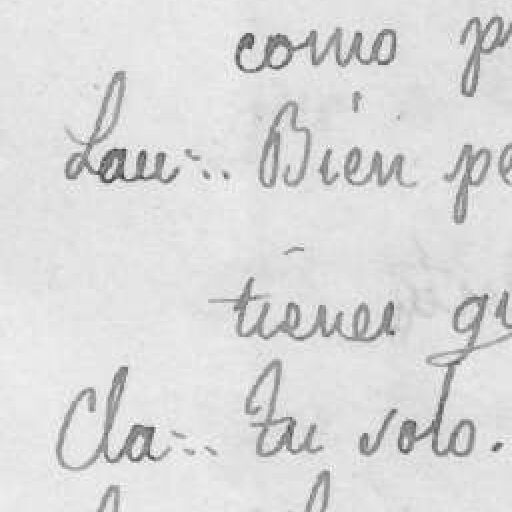 como
Lau-.. Bien
tienes
Cla-.. Tu solo.